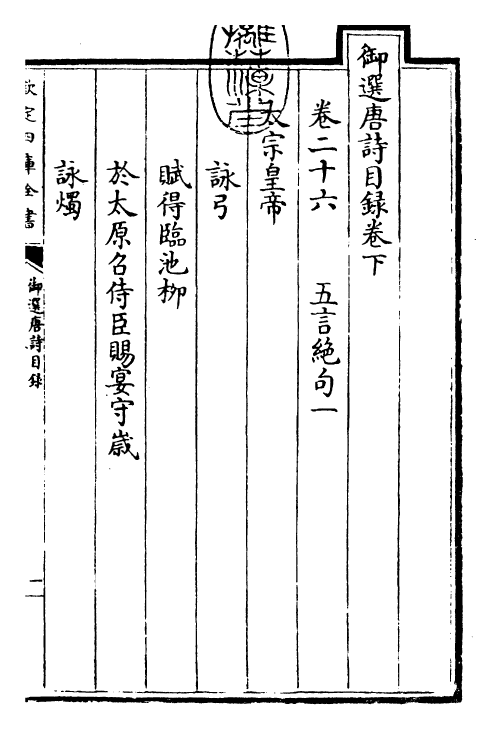 御選唐詩目録卷下
卷二十六 五言絶句一
太宗皇帝
詠弓
賦得臨池栁
於太原召侍臣賜宴守歳
詠燭
欽定四庫全書
御選唐詩目録